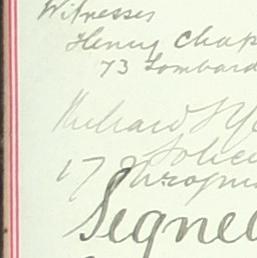 Witnesses
Henry Chap
73 Lombard
Richard
Solici
17 Throgm
Signed